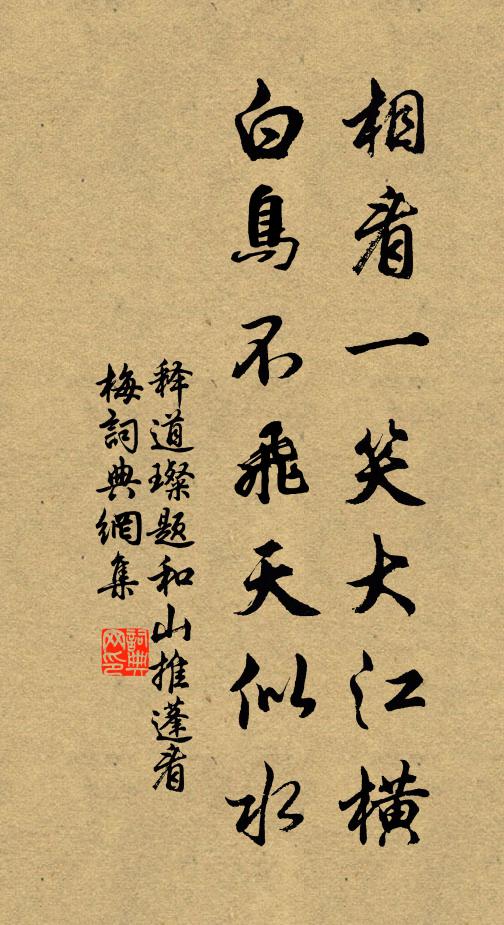 相看一笑大江橫
白鳥不飛天似水
释道璨题和山推蓬看
梅詞典網集
詞典网印